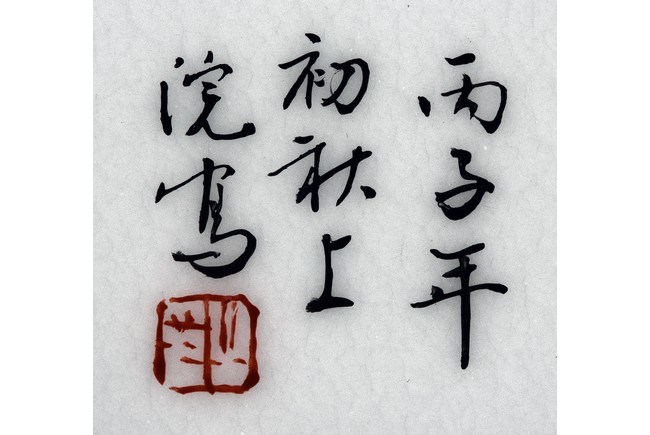 丙子年
初秋上
浣寫